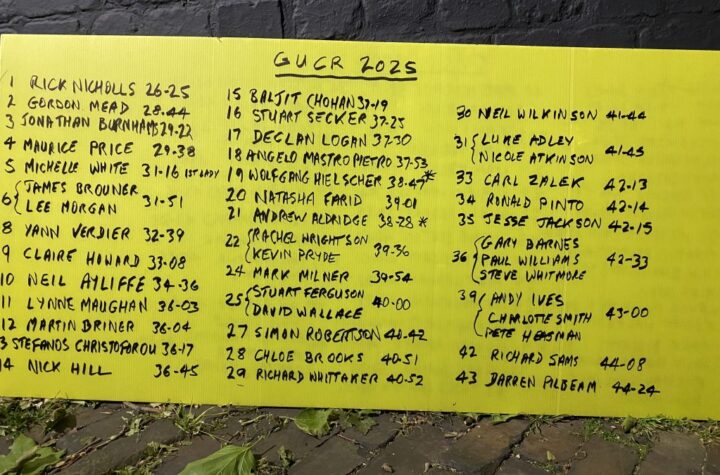 GUCR 2025
1 RICK NICHOLLS 26-25
2 GORDON MEAD 28-44
3 JONATHAN BURNHAMS 29-22
4 MAURICE PRICE 29-38
5 MICHELLE WHITE 31-16 1ST LADY
6 { JAMES BROUNER
LEE MORGAN 31-51
8 YANN VERDIER 32-39
9 CLAIRE HOWARD 33-08
10 NEIL AYLIFFE 34-36
11 LYNNE MAUGHAN 36-03
12 MARTIN BRINER 36-04
3 STEFANOS CHRISTOFOROU 36-17
14 NICK HILL 36-45
15 BALJIT CHOHAN 37-19
16 STUART SECKER 37-25
17 DECLAN LOGAN 37-30
18 ANGELO MASTROPIETRO 37-53
19 WOLFGANG HIELSCHER 38-47*
20 NATASHA FARID 39-01
21 ANDREW ALDRIDGE 38-28 *
22 { RACHEL WRIGHTSON
KEVIN PRYDE 39-36
24 MARK MILNER 39-54
25 { STUART FERGUSON
DAVID WALLACE 40-00
27 SIMON ROBERTSON 40-42
28 CHLOE BROOKS 40-51
29 RICHARD WHITTAKER 40-52
30 NEIL WILKINSON 41-44
31 { LUKE ADLEY
NICOLE ATKINSON 41-45
33 CARL ZALEK 42-13
34 RONALD PINTO 42-14
35 JESSE JACKSON 42-15
36 { GARY BARNES
PAUL WILLIAMS 42-33
STEVE WHITMORE
39 { ANDY IVES
CHARLOTTE SMITH 43-00
PETE HEASMAN
42 RICHARD SAMS 44-08
43 DARREN PILBEAM 44-24